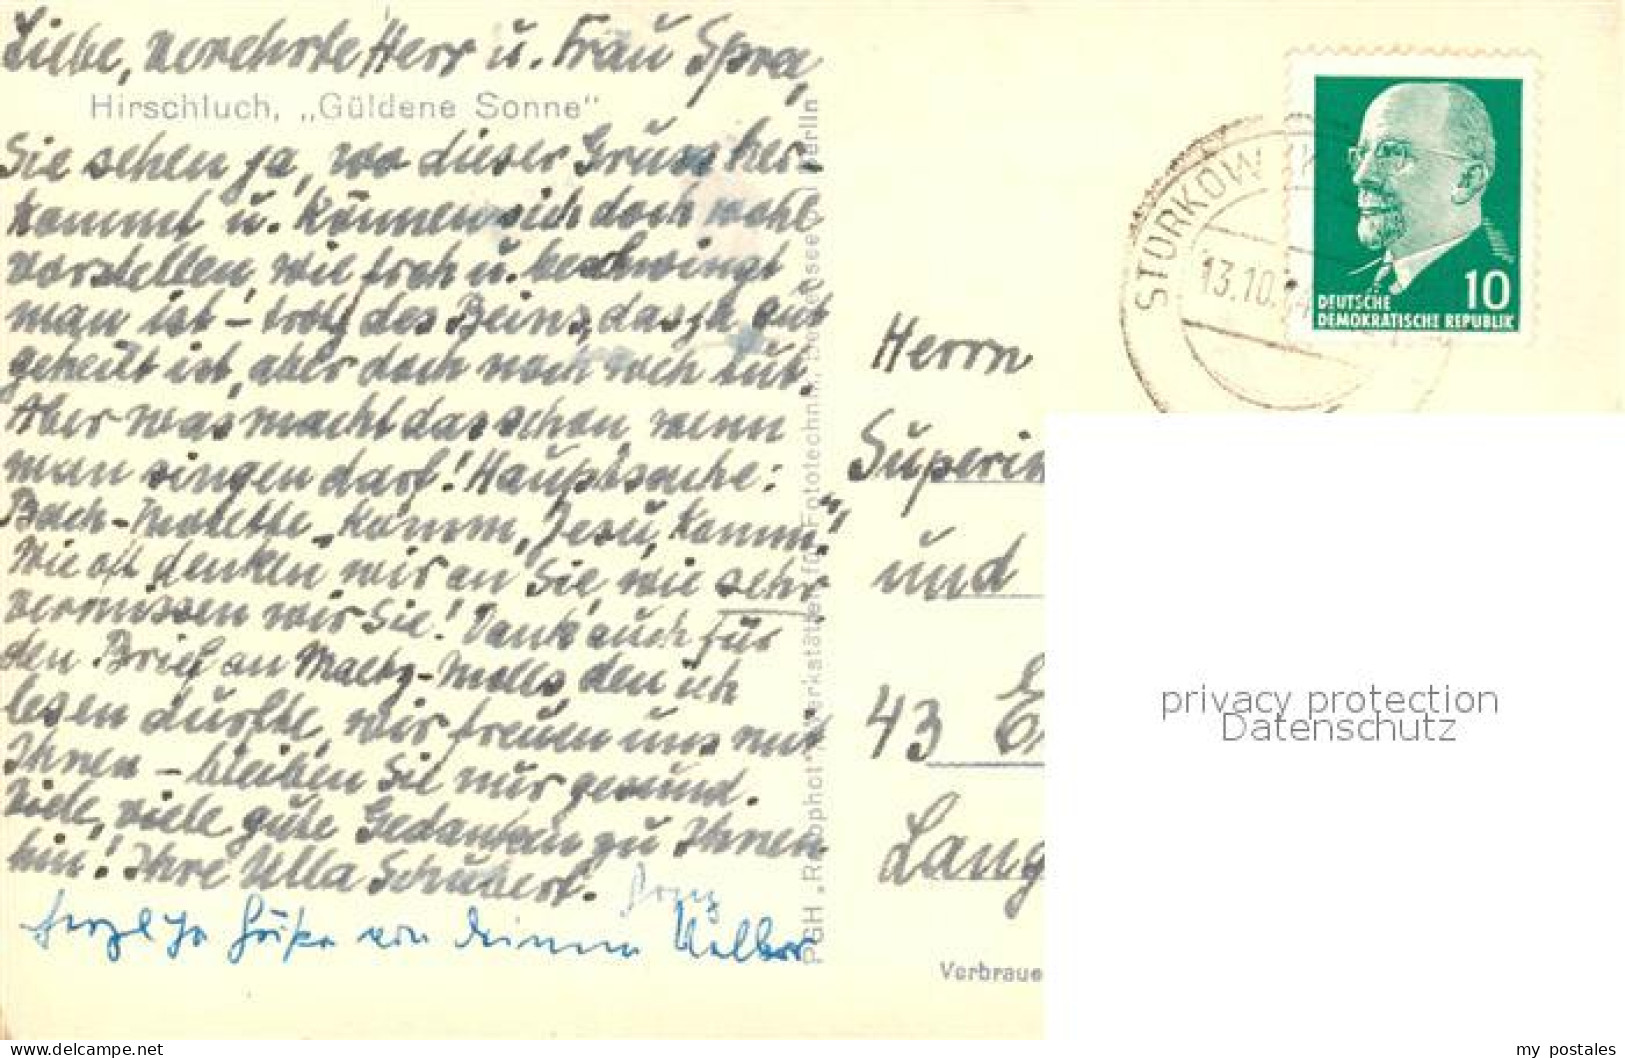 Liebe, verehrte Herr u. Frau Spra,
Hirschluch, „Güldene Sonne“
Sie sehen ja, wo dieser Gruss her-
kommt u. können sich doch wohl
vorstellen, wie froh u. beschwingt
man ist – trotz des Beins, das ja gut
geheilt ist, aber doch noch weh tut.
Aber was macht das schon, wenn
man singen darf! Hauptsache:
Bach-Motette „Komm, Jesu, komm“,
Wie oft denken wir an Sie, wie sehr
vermissen wir Sie! Dank auch für
den Brief an Maltz-Molls, den ich
lesen durfte, wir freuen uns mit
Ihnen – bleiben Sie nur gesund.
Viele, viele gute Gedanken zu Ihnen
hin! Ihre Ulla Schubert.
von
PGH „Rotophot“ Werkstätten für Fototechnik Berlin
STORKOW
13.10.
DEUTSCHE
DEMOKRATISCHE REPUBLIK
10
Herrn
Superin
und
43 E
Lang
Verbrau
privacy protection
Datenschutz
delcampe.net
my_postales